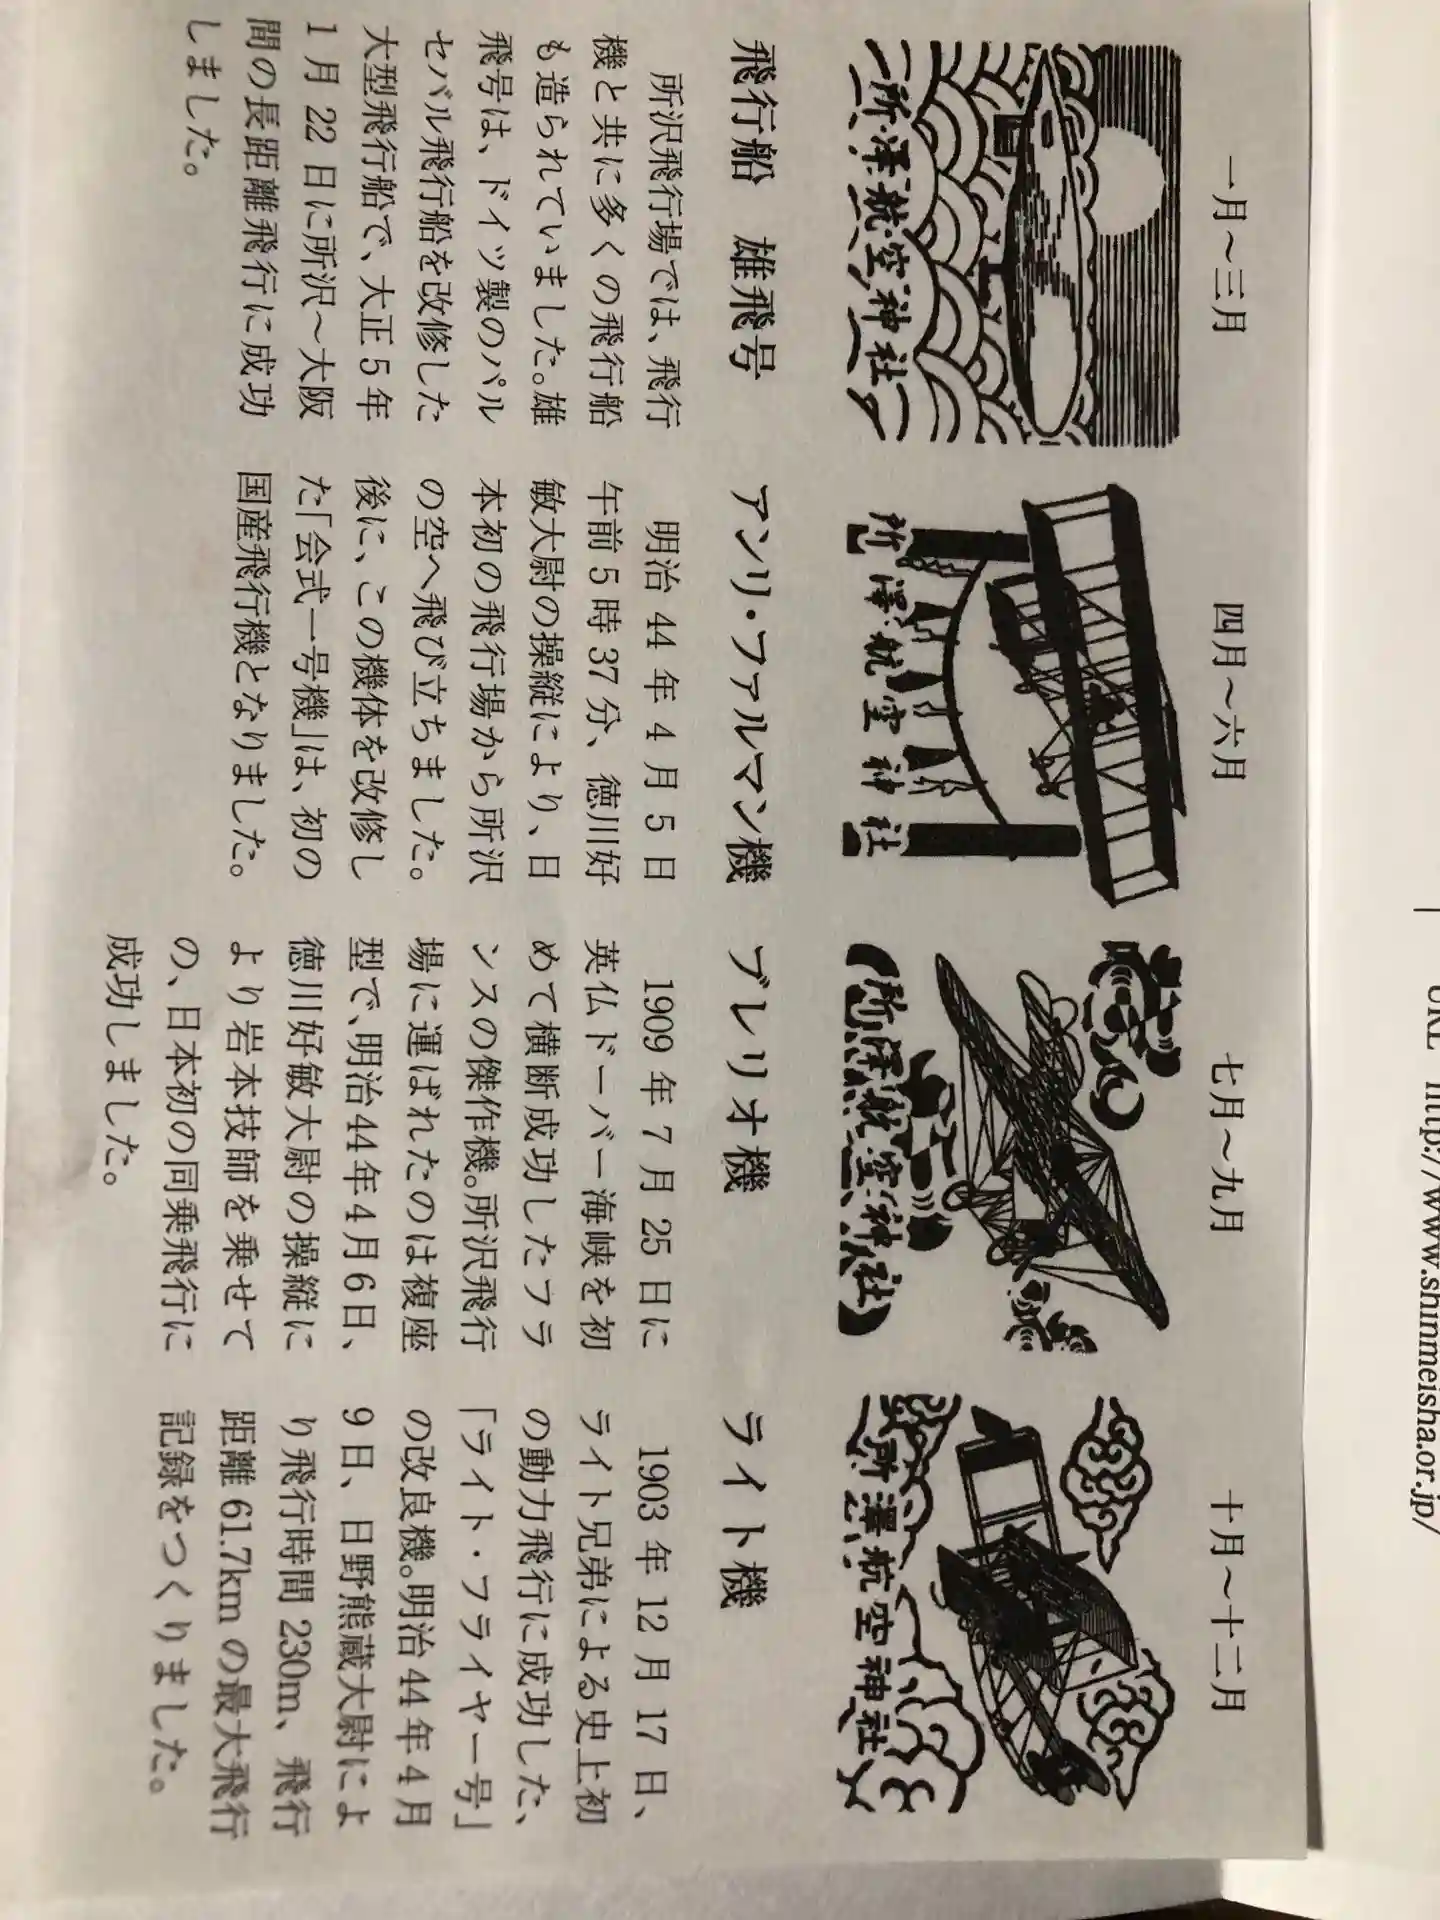 URL http://www.shinmeisha.or.jp/
一月～三月
所澤航空神社
飛行船 雄飛号
所沢飛行場では、飛行
機と共に多くの飛行船
も造られていました。雄
飛号は、ドイツ製のパル
セバル飛行船を改修した
大型飛行船で、大正5年
1月22日に所沢～大阪
間の長距離飛行に成功
しました。
四月～六月
所澤航空神社
アンリ・ファルマン機
明治44年4月5日
午前5時37分、徳川好
敏大尉の操縦により、日
本初の飛行場から所沢
の空へ飛び立ちました。
後に、この機体を改修し
た「会式一号機」は、初の
国産飛行機となりました。
七月～九月
所澤航空神社
ブレリオ機
1909年7月25日に
英仏ドーバー海峡を初
めて横断成功したフラ
ンスの傑作機。所沢飛行
場に運ばれたのは複座
型で、明治44年4月6日、
徳川好敏大尉の操縦に
より岩本技師を乗せて
の、日本初の同乗飛行に
成功しました。
十月～十二月
所澤航空神社
ライト機
1903年12月17日、
ライト兄弟による史上初
の動力飛行に成功した、
「ライト・フライヤー号」
の改良機。明治44年4月
9日、日野熊蔵大尉によ
り飛行時間230m、飛行
距離61.7kmの最大飛行
記録をつくりました。